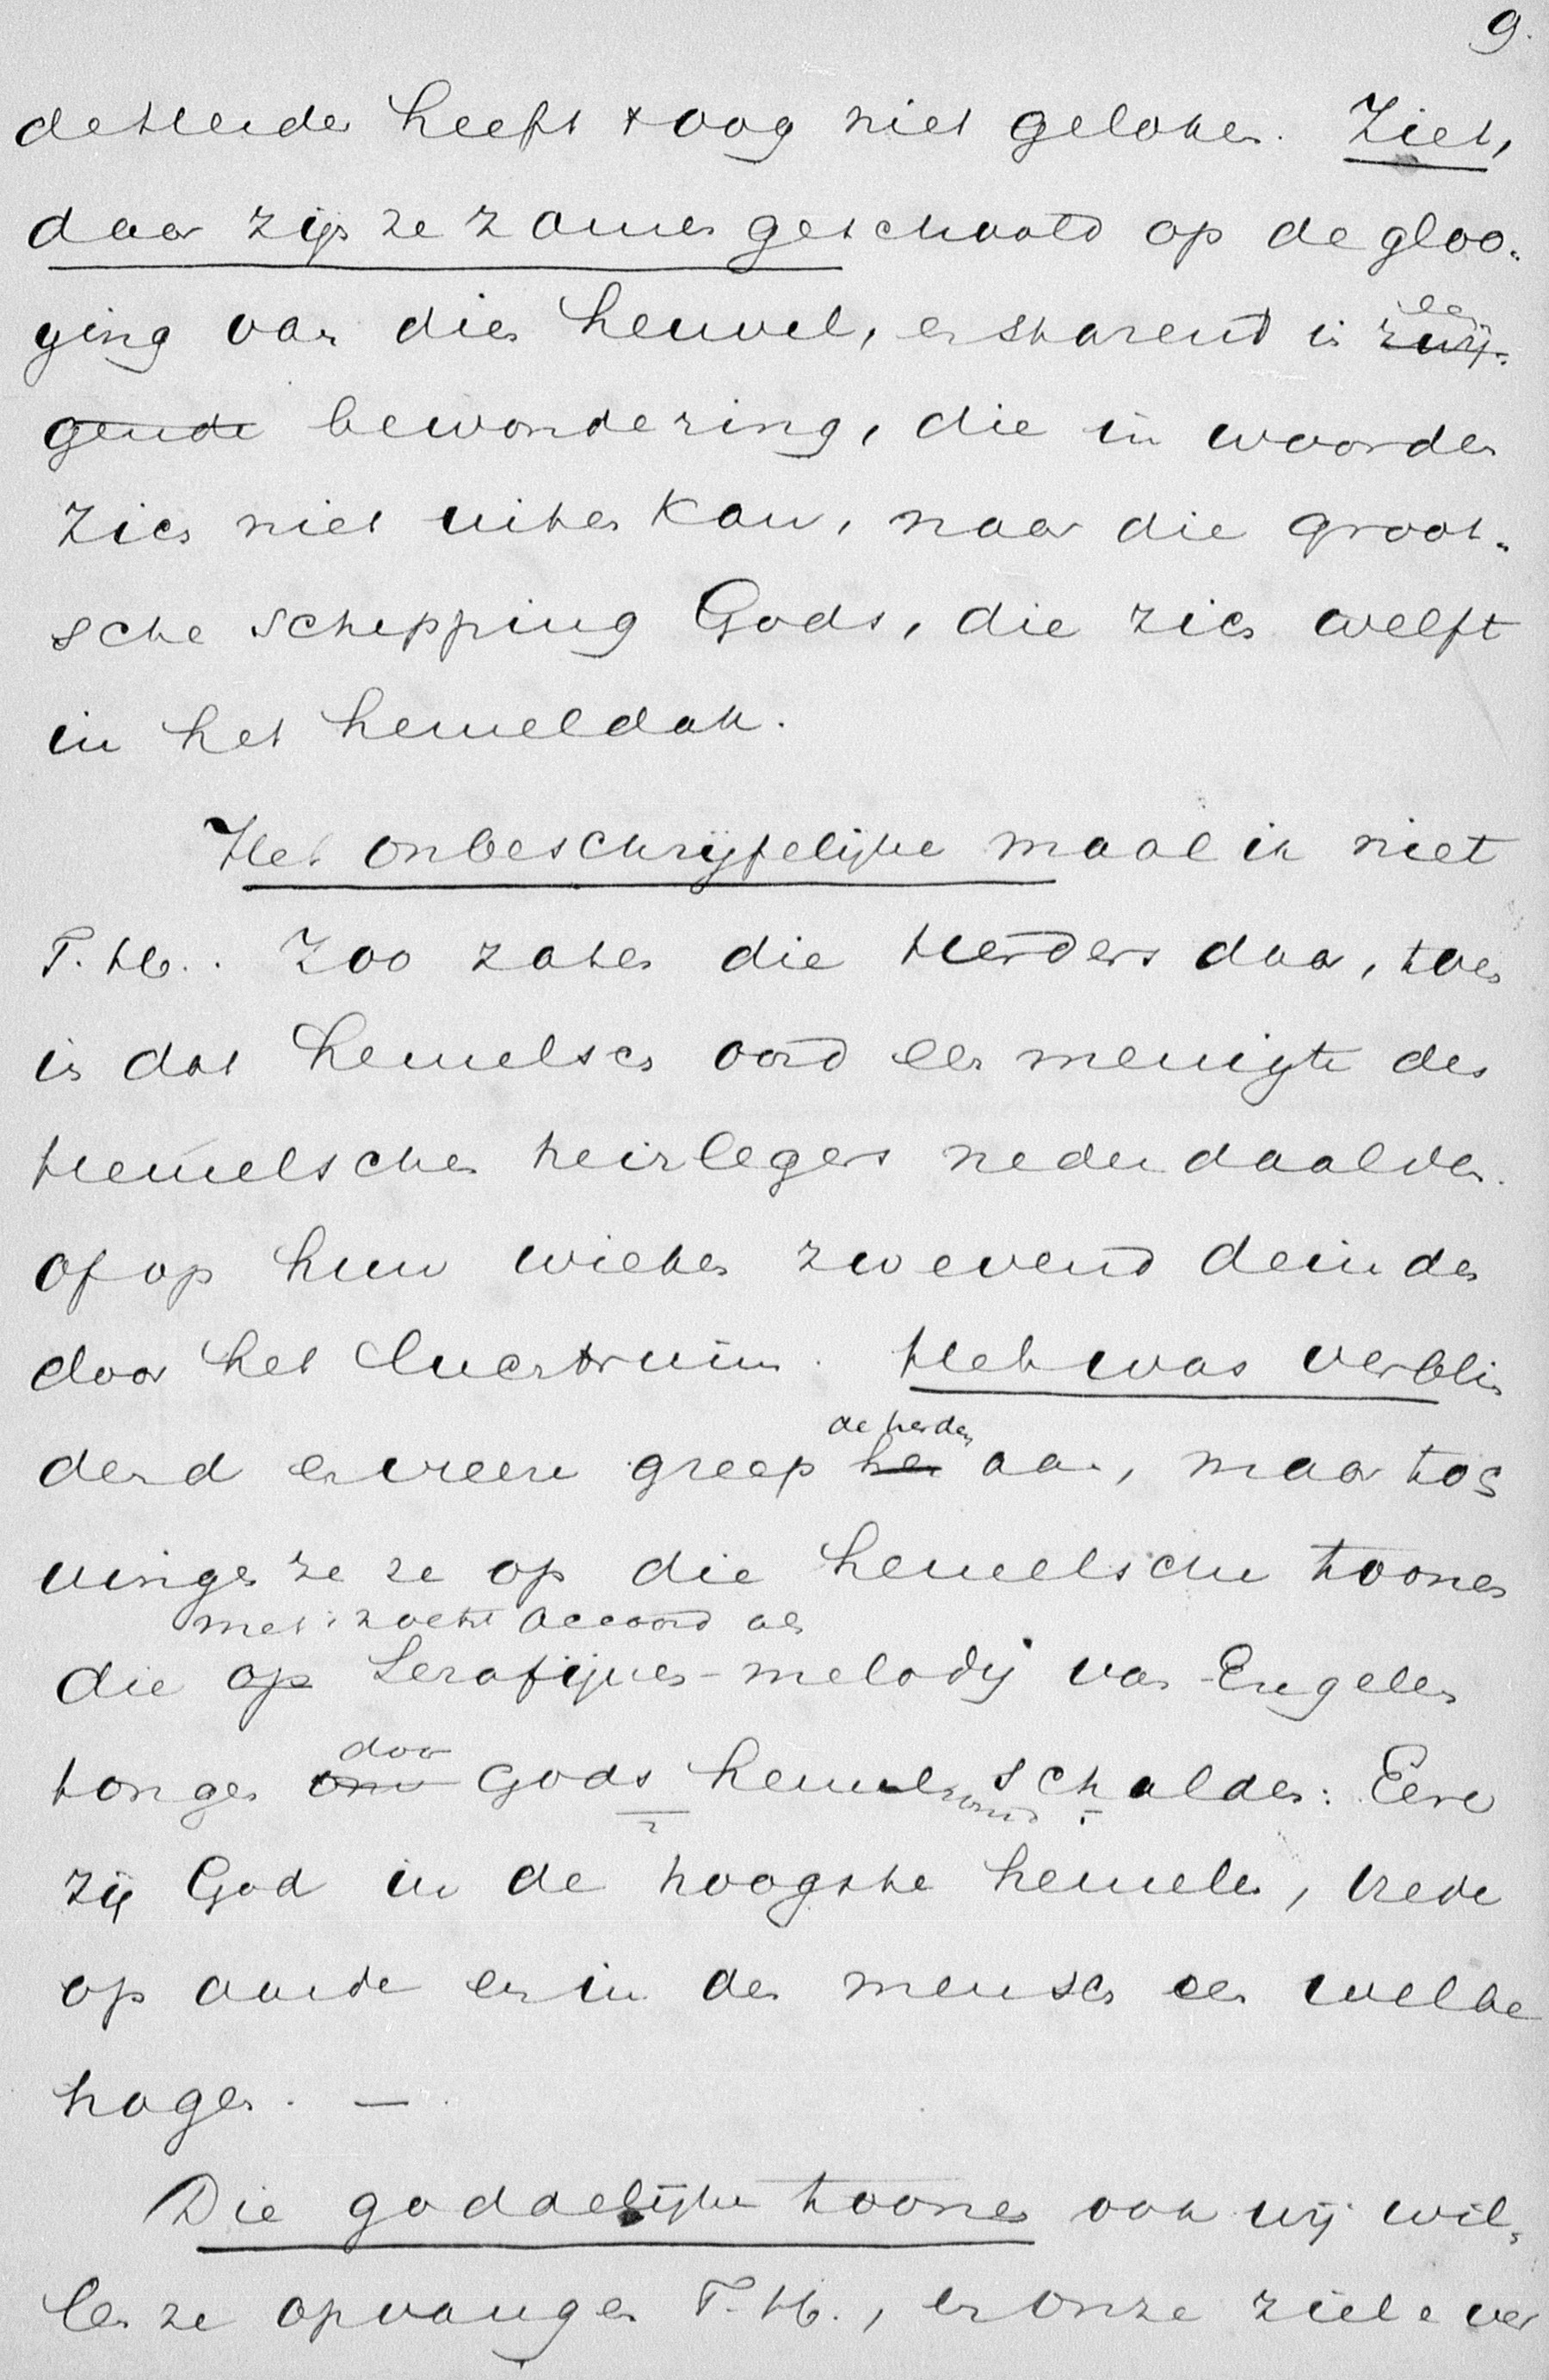 9.
der Herders heeft 't oog niet geloken. Ziet,
daar zijn ze zamen geschaard op de gloo-
ying van dien heuvel, en starend in een zwij-
gende bewondering, die in woorden
zich niet uiten kan, naar die groot-
sche schepping Gods, die zich welft
in het hemeldak.
Het onbeschrijfelijke maal ik niet
T. H.. Zoo zaten die Herders daar, toen
in dat hemelsch oord een menigte des
Hemelschen heirlegers nederdaalden
of op hun wieken zwevend deinden
door het luchtruim. Het was verblin
dend en vreeze greep de herders hen aan, maar toch
vingen ze ze op die hemelsche toonen
met zacht accoord als
die op Serafijnen-melodij van Engelen
tongen door om Gods hemelrond schalden: Eere
zij God in de hoogste hemelen, vrede
op aarde en in den mensch een welbe
hagen. —
Die goddelijke toonen ook wij wil-
len ze opvangen T. H., en onze ziele ver